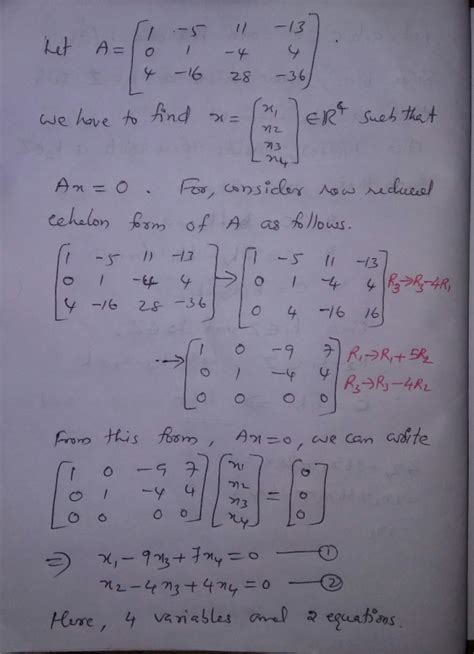 Let A = [ 1 -5 11 -13
0 1 -4 4
4 -16 28 -36 ] .
we have to find x = ( x1 x2 x3 x4 ) ∈ R^4 such that
Ax = 0 . For, consider row reduced
echelon form of A as follows.
[ 1 -5 11 -13
0 1 -4 4
4 -16 28 -36 ] → [ 1 -5 11 -13
0 1 -4 4
0 4 -16 16 ] R3→R3-4R1
→ [ 1 0 -9 7
0 1 -4 4
0 0 0 0 ] R1→R1+5R2
R3→R3-4R2
From this form, Ax=0, we can write
[ 1 0 -9 7
0 1 -4 4
0 0 0 0 ] [ x1 x2 x3 x4 ] = [ 0 0 0 ]
⇒ x1-9x3+7x4=0 — ①
x2-4x3+4x4=0 — ②
Here, 4 variables and 2 equations.